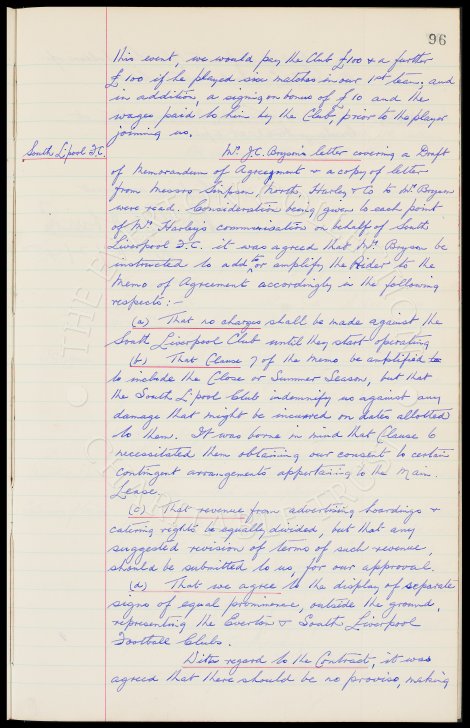 96
this event, we would pay the Club £100 & a further
£100 if he played six matches in our 1st team; and
in addition, a signing on bonus of £10 and the
wages paid to him by the Club, prior to the player
joining us.
South L'pool F.C.
Mr. J.C. Bryson's letter covering a Draft
of Memorandum of Agreement & a copy of letter
from Messrs Simpson, North, Harley & Co to Mr. Bryson
were read. Consideration being given to each point
of Mr. Harley's communication on behalf of South
Liverpool F.C. it was agreed that Mr. Bryson be
instructed to add to or amplify the Rider to the
Memo of Agreement accordingly in the following
respects:-
(a) That no charges shall be made against the
South Liverpool Club until they start operating
(b) That Clause 7 of the Memo be amplified to
to include the Close or Summer Season, but that
the South L'pool Club indemnify us against any
damage that might be incurred on dates allotted
to them. It was borne in mind that Clause 6
necessitated them obtaining our consent to certain
contingent arrangements appertaining to the main
Lease.
(c) That revenue from advertising hoardings &
catering rights be equally divided, but that any
suggested revision of terms of such revenue,
should be submitted to us, for our approval.
(d) That we agree to the display of separate
signs of equal prominence, outside the ground,
representing the Everton & South Liverpool
Football Clubs.
With regard to the Contract, it was
agreed that there should be no proviso, making